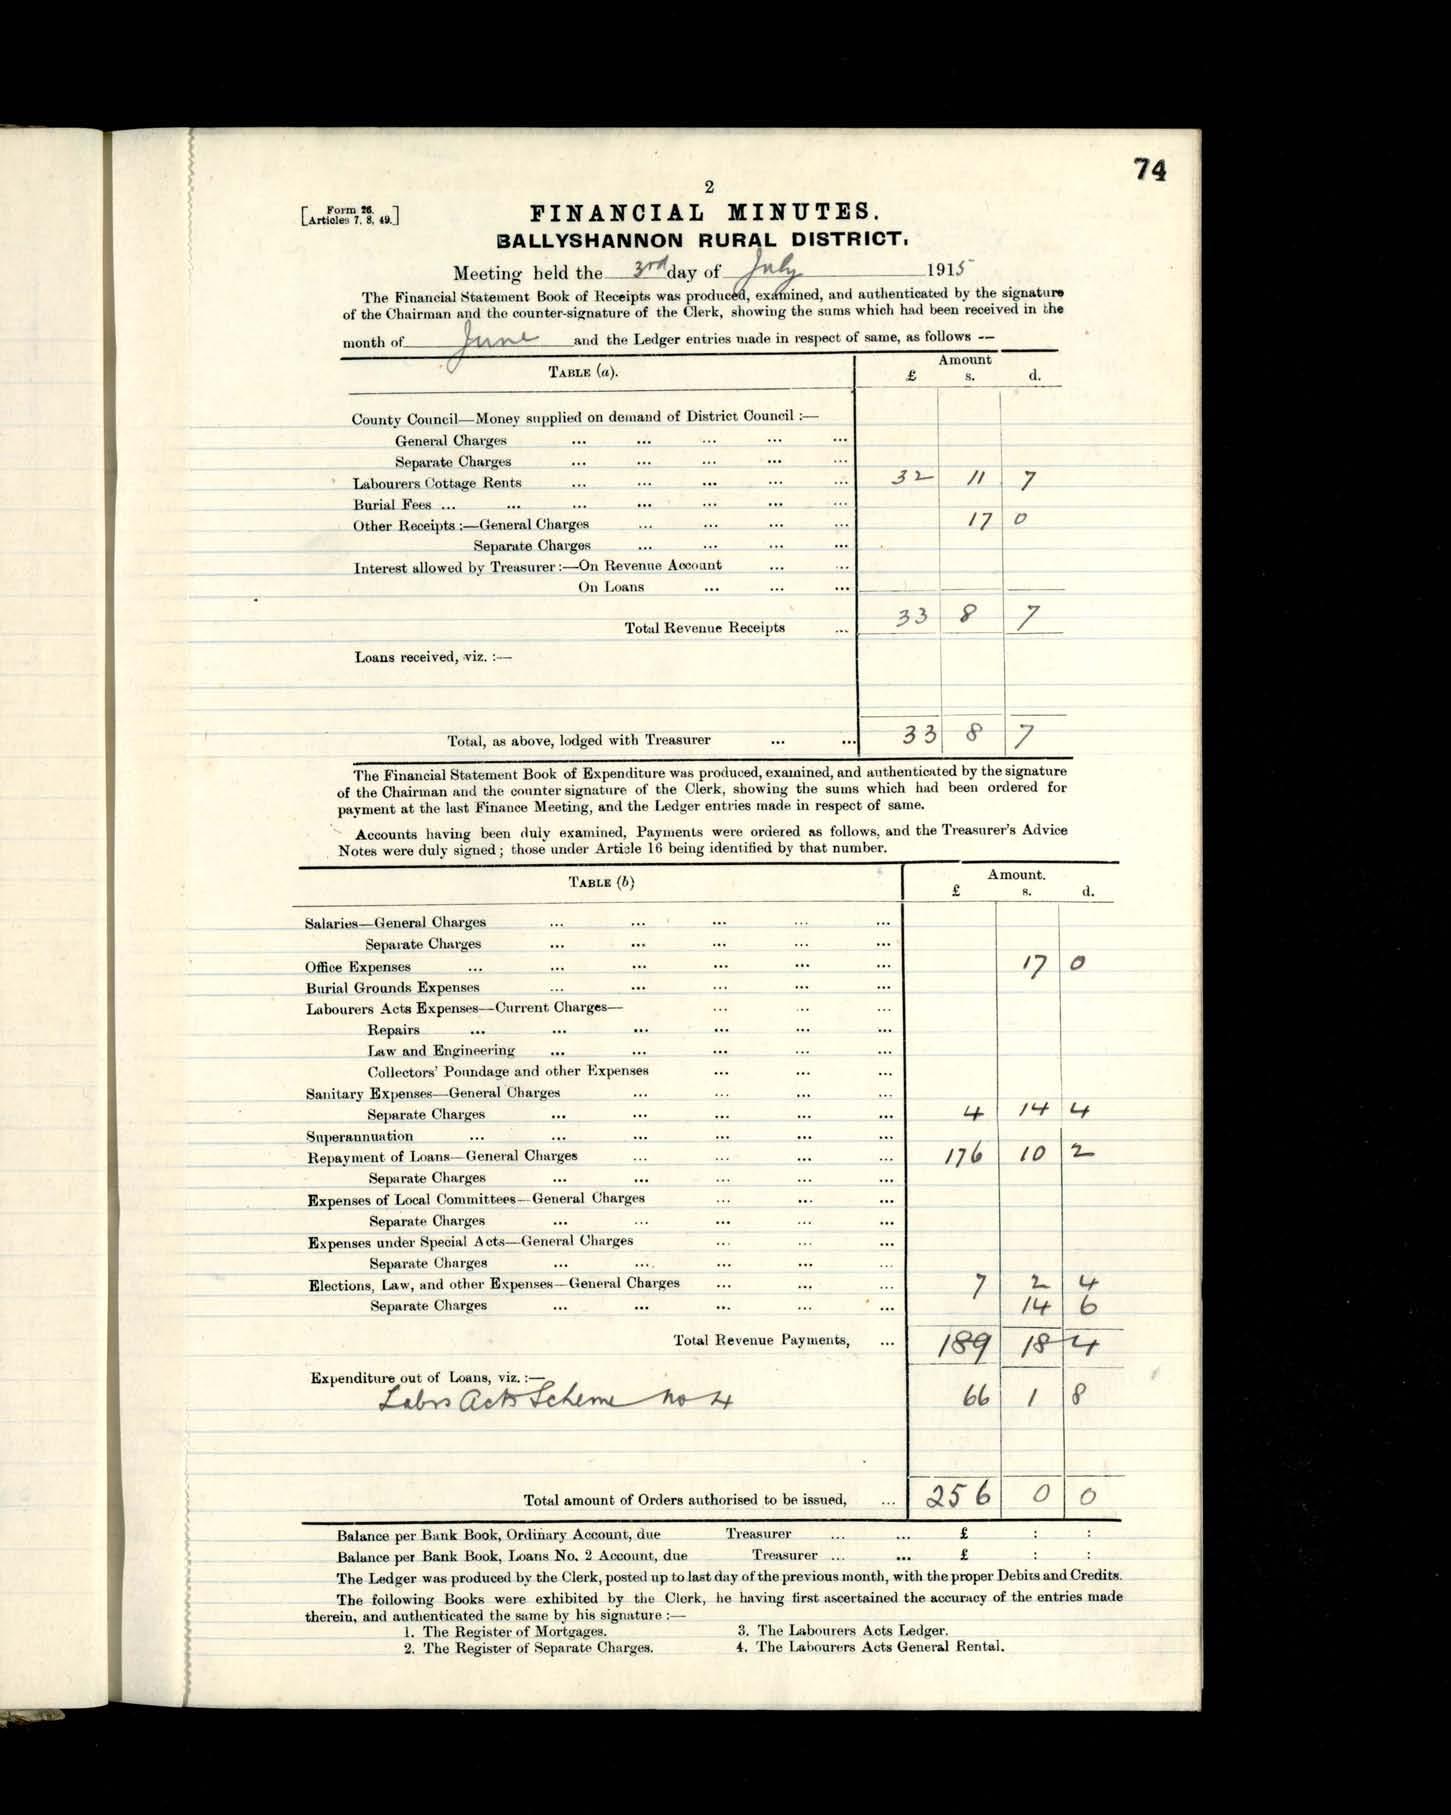 74
2
[Form 26. Articles 7, 8, 49.]
FINANCIAL MINUTES.
BALLYSHANNON RURAL DISTRICT.
Meeting held the 3rd day of July 1915
The Financial Statement Book of Receipts was produced, examined, and authenticated by the signature
of the Chairman and the counter-signature of the Clerk, showing the sums which had been received in the
month of June and the Ledger entries made in respect of same, as follows —
TABLE (a). Amount
£ s. d.
County Council—Money supplied on demand of District Council :—
General Charges ... ... ... ... ...
Separate Charges ... ... ... ... ...
Labourers Cottage Rents ... ... ... ... ... 32 11 7
Burial Fees ... ... ... ... ... ... ...
Other Receipts :—General Charges ... ... ... ... 17 0
Separate Charges ... ... ... ...
Interest allowed by Treasurer :—On Revenue Account ... ...
On Loans ... ... ...
Total Revenue Receipts ... 33 8 7
Loans received, viz. :—
Total, as above, lodged with Treasurer ... ... 33 8 7
The Financial Statement Book of Expenditure was produced, examined, and authenticated by the signature
of the Chairman and the counter signature of the Clerk, showing the sums which had been ordered for
payment at the last Finance Meeting, and the Ledger entries made in respect of same.
Accounts having been duly examined, Payments were ordered as follows, and the Treasurer's Advice
Notes were duly signed; those under Article 16 being identified by that number.
TABLE (b) Amount.
£ s. d.
Salaries—General Charges ... ... ... ... ...
Separate Charges ... ... ... ... ...
Office Expenses ... ... ... ... ... ... 17 0
Burial Grounds Expenses ... ... ... ... ...
Labourers Acts Expenses—Current Charges— ... ... ...
Repairs ... ... ... ... ... ...
Law and Engineering ... ... ... ... ...
Collectors' Poundage and other Expenses ... ... ...
Sanitary Expenses—General Charges ... ... ... ...
Separate Charges ... ... ... ... ... 4 14 4
Superannuation ... ... ... ... ... ...
Repayment of Loans—General Charges ... ... ... ... 176 10 2
Separate Charges ... ... ... ... ...
Expenses of Local Committees—General Charges ... ... ...
Separate Charges ... ... ... ... ...
Expenses under Special Acts—General Charges ... ... ...
Separate Charges ... ... ... ... ...
Elections, Law, and other Expenses—General Charges ... ... ... 7 2 4
Separate Charges ... ... ... ... ... 14 6
Total Revenue Payments, ... 189 18 4
Expenditure out of Loans, viz. :—
Labrs Acts Scheme No 4 66 1 8
Total amount of Orders authorised to be issued, ... 256 0 0
Balance per Bank Book, Ordinary Account, due Treasurer ... ... £ : :
Balance per Bank Book, Loans No. 2 Account, due Treasurer ... ... £ : :
The Ledger was produced by the Clerk, posted up to last day of the previous month, with the proper Debits and Credits.
The following Books were exhibited by the Clerk, he having first ascertained the accuracy of the entries made
therein, and authenticated the same by his signature :—
1. The Register of Mortgages. 3. The Labourers Acts Ledger.
2. The Register of Separate Charges. 4. The Labourers Acts General Rental.